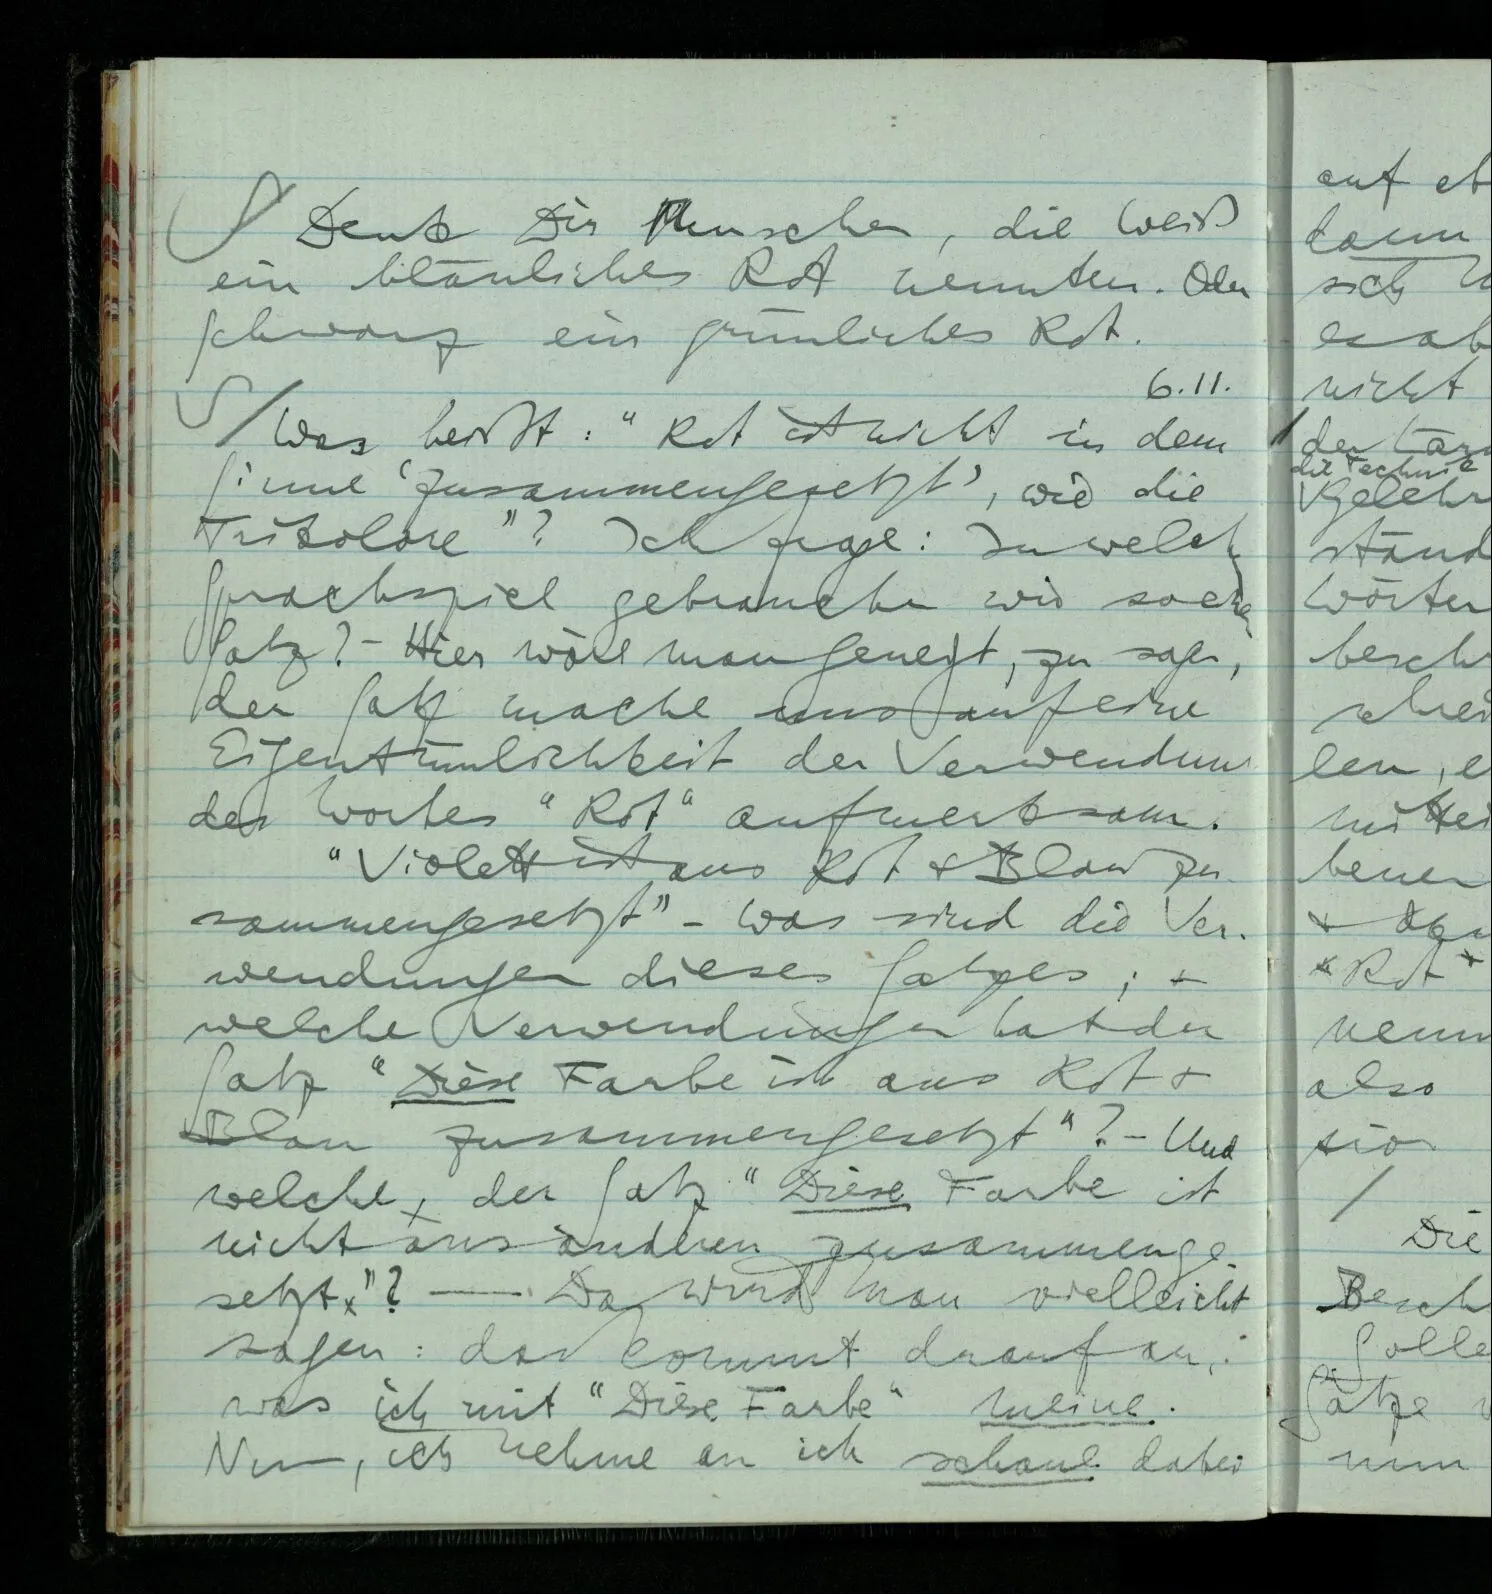 ∫ / Denk Dir Menschen, die Weiß
ein bläuliches Rot nennten. Oder
Schwarz ein grünliches Rot.
6.11.
∫ / Was heißt: “Rot ist nicht in dem
Sinne ‘zusammengesetzt’, wie die
Trikolore”? Ich frage: In welchen
Sprachspiel gebrauchen wir solchen
Satz? – Hier wäre man geneigt, zu sagen,
der Satz mache uns auf eine
Eigentümlichkeit der Verwendung
des Wortes “Rot“ aufmerksam.
“Violett ist aus Rot & Blau zu-
sammengesetzt” – Was sind die Ver-
wendungen dieses Satzes; &
welche Verwendungen hat der
Satz “Diese Farbe ist aus Rot &
Blau zusammengesetzt“? – Und
welche, der Satz “Diese Farbe ist
nicht aus anderen zusammenge-
setzt”? —— Da wird man vielleicht
sagen: das kommt drauf an,
was ich mit “Diese Farbe“ meine.
Nun, ich nehme an ich schaue dabei
auf
kann
sich
es
nicht
der
die Technik
stand
Wörter
besch
len,
mittei
+
“Rot”
nenn
also
sion
/
Die
Besch
Solle
Sätze
nun